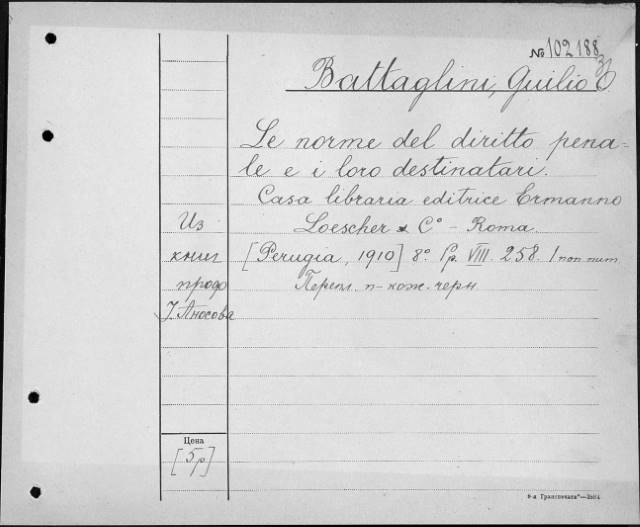 № 102188
Battaglini, Guilio
Le norme del diritto pena-
le e i loro destinatari.
Casa libraria editrice Ermanno
Loescher & C° - Roma.
[Perugia, 1910] 8° pp. VIII. 258. 1 non num.
Перепл. п-кож. черн
Из
книг
продо
Аносова
Цена
[5р]